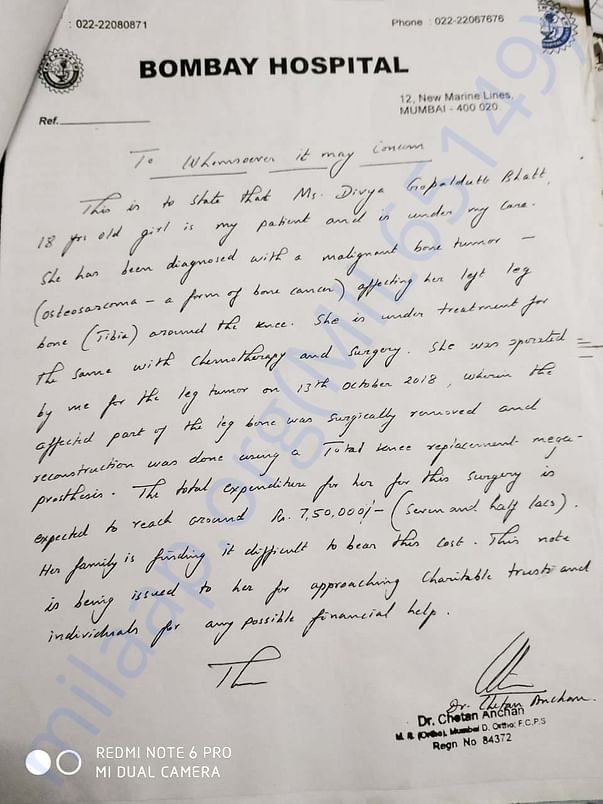 : 022-22080871
Phone : 022-22067676
BOMBAY HOSPITAL
12, New Marine Lines,
MUMBAI - 400 020.
Ref.
To Whomsoever it may Concern
This is to state that Ms. Divya Gopaldutt Bhatt,
18 yrs old girl is my patient and is under my care.
She has been diagnosed with a malignant bone tumor –
(osteosarcoma – a form of bone cancer) affecting her left leg
bone (Tibia) around the knee. She is under treatment for
the same with Chemotherapy and Surgery. She was operated
by me for the leg tumor on 13th October 2018, wherein the
affected part of the leg bone was surgically removed and
reconstruction was done using a Total knee replacement mega-
prosthesis. The total expenditure for her for this surgery is
expected to reach around Rs. 7,50,000/- (Seven and half lacs).
Her family is finding it difficult to bear this cost. This note
is being issued to her for approaching Charitable trusts and
individuals for any possible financial help.
Dr. Chetan Anchan.
Dr. Chetan Anchan
M. S. (Ortho), Mumbai D. Ortho; F.C.P.S
Regn No 84372
milaap.org(MIL65149)
REDMI NOTE 6 PRO
MI DUAL CAMERA